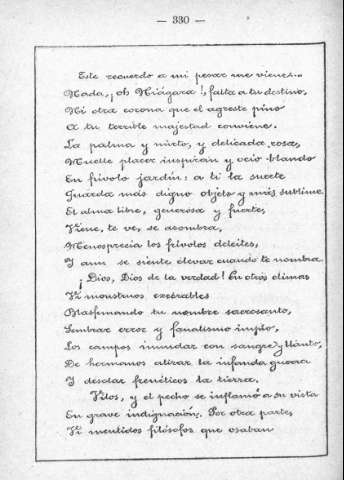 — 330 —
Este recuerdo a mi pesar me viene...
Nada, ¡oh Niágara!, falta a tu destino,
Ni otra corona que el agreste pino
A tu terrible majestad conviene.
La palma y mirto, y delicada rosa,
Muelle placer inspiran y ocio blando
En frívolo jardín: a ti la suerte
Guarda más digno objeto y más sublime.
El alma libre, generosa y fuerte,
Viene, te ve, se asombra,
Menosprecia los frívolos deleites,
Y aun se siente elevar cuando te nombra.
¡Dios, Dios de la verdad! En otros climas
Vi monstruos execrables
Blasfemando tu nombre sacrosanto,
Sembrar error y fanatismo impío,
Los campos inundar con sangre y llanto,
De hermanos atizar la infanda guerra
Y desolar frenéticos la tierra.
Vilos, y el pecho se inflamó a su vista
En grave indignación. Por otra parte,
Vi mentidos filósofos que osaban